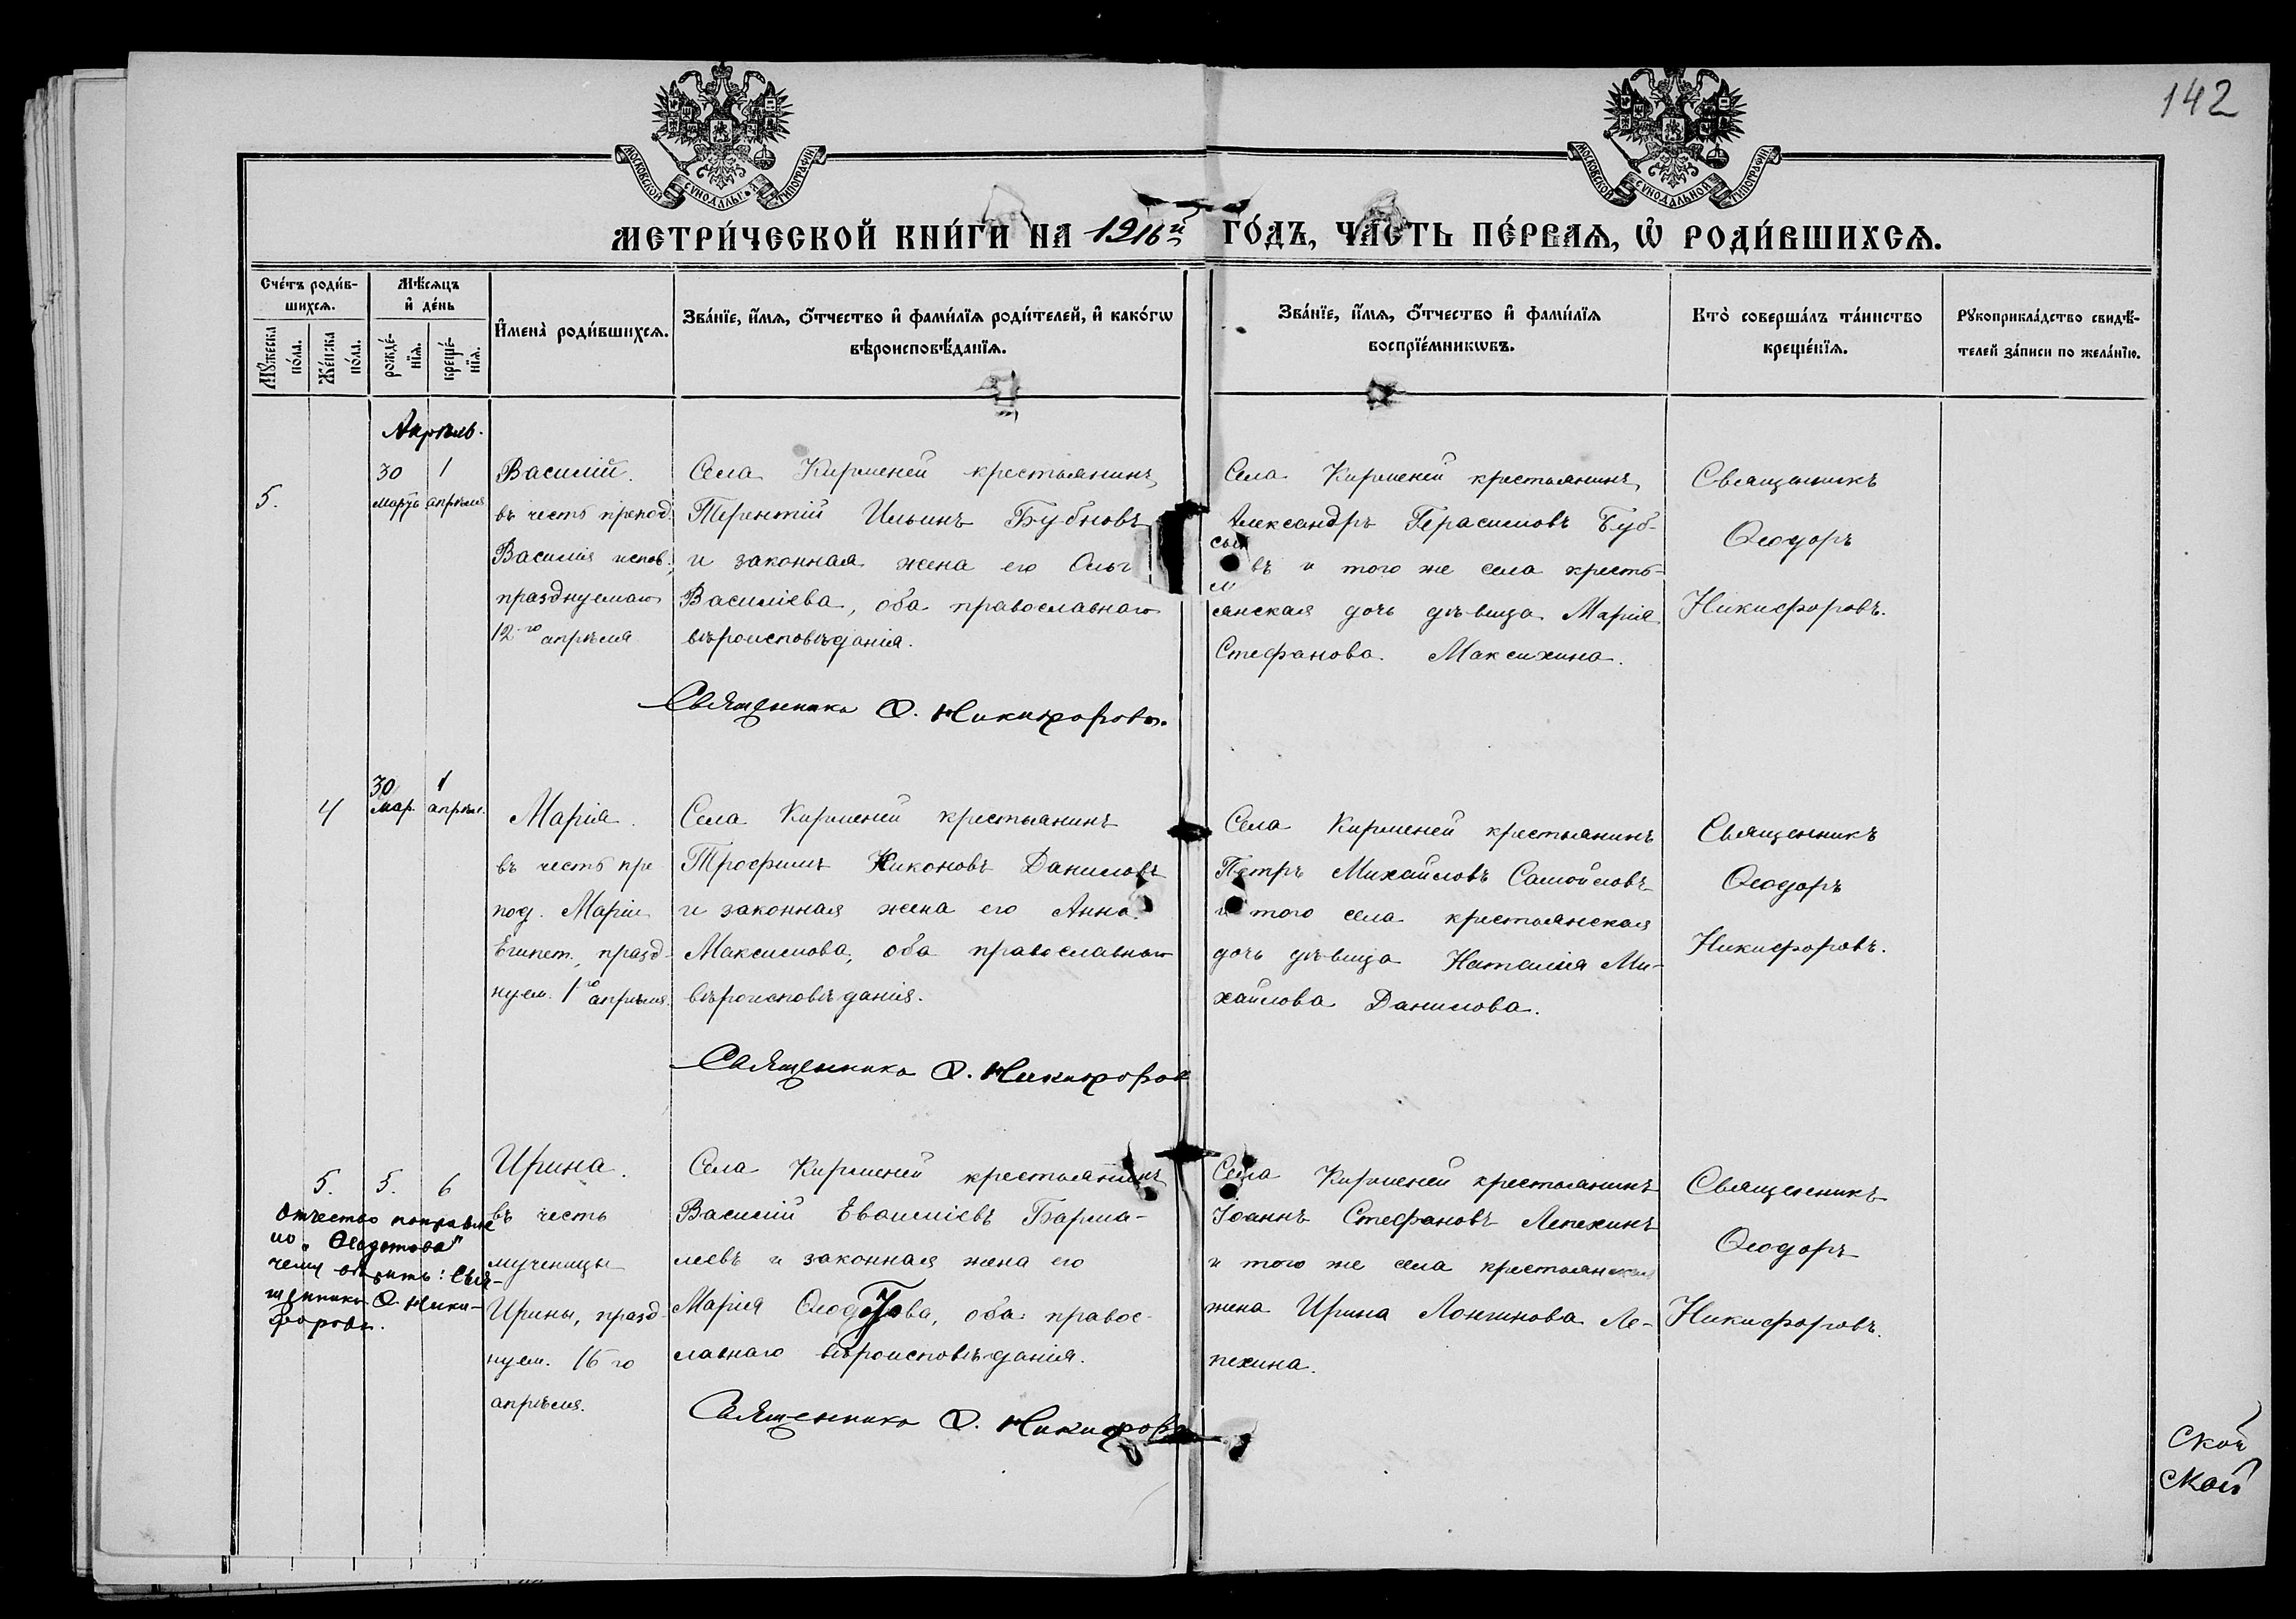 142
МОСКОВСКОЙ СѴНОДАЛЬНОЙ ТИПОГРАФІИ
МОСКОВСКОЙ СѴНОДАЛЬНОЙ ТИПОГРАФІИ
МЕТРИ́ЧЕСКОЙ КНИ́ГИ НА 1916й ГО́ДЪ, ЧА́СТЬ ПЕ́РВАѦ, Ѡ҆ РОДИ́ВШИХСѦ.
Сче́тъ роди́в-
шихсѧ.
Мꙋ́жеска по́ла.
Же́нска по́ла.
Мѣ́сѧцъ
и҆ де́нь
рожде́-
нїѧ.
креще́-
нїѧ.
И҆мена̀ роди́вшихсѧ.
Зва́нїе, и҆́мѧ, ѻ҆́тчество и҆ фами́лїѧ роди́телей, и҆ како́гѡ
вѣроисповѣ́данїѧ.
Зва́нїе, и҆́мѧ, ѻ҆́тчество и҆ фами́лїѧ
воспрїе́мникѡвъ.
Кто̀ соверша́лъ та́инство
креще́нїѧ.
Рꙋкоприкла́дство свидѣ́-
телей за́писи по жела́нїю.
Апрѣль.
5.
30 1
марта апрѣля
Василій.
въ честь препод.
Василія испов.,
празднуемаго
12-го апрѣля
Села Кирменей крестьянинъ
Терентій Ильинъ Бубновъ
и законная жена его Ольг
Василіева, оба православнаго
вѣроисповѣданія.
Священникъ Ѳ. Никифоровъ.
Села Кирменей крестьянинъ
Александръ Герасимовъ Буб-
въ и того же села кресть-
янская дочь дѣвица Марія
Стефанова Максихина.
Священникъ
Ѳеодоръ
Никифоровъ.
4
30 1
мар. апрѣл.
Марія.
въ честь пре
под. Маріи
Египет., празд-
нуем. 1го апрѣля.
Села Кирменей крестьянинъ
Трофимъ Никоновъ Даниловъ
и законная жена его Анна
Максимова, оба православнаго
вѣроисповѣданія.
Священникъ Ѳ. Никифоров
Села Кирменей крестьянинъ
Петръ Михайловъ Самойловъ
и того села крестьянская
дочь дѣвица Наталія Ми-
хайлова Данилова.
Священникъ
Ѳеодоръ
Никифоровъ.
5. 5. 6
Отчество поправле
но „Ѳеодотова"
чему вѣрить: Свя-
щенникъ Ѳ. Ники-
форовъ.
Ирина.
въ честь
мученицы
Ирины, празд-
нуем. 16го
апрѣля.
Села Кирменей крестьянинъ
Василій Евсиміевъ Барма-
леевъ и законная жена его
Марія Ѳеодотова, оба правос-
лавнаго вѣроисповѣданія.
Священникъ Ѳ. Никифоров
Села Кирменей крестьянинъ
Іоаннъ Стефановъ Лепехинъ
и того же села крестьянская
жена Ирина Лонгинова Ле-
пехина.
Священникъ
Ѳеодоръ
Никифоровъ.
ской
ской